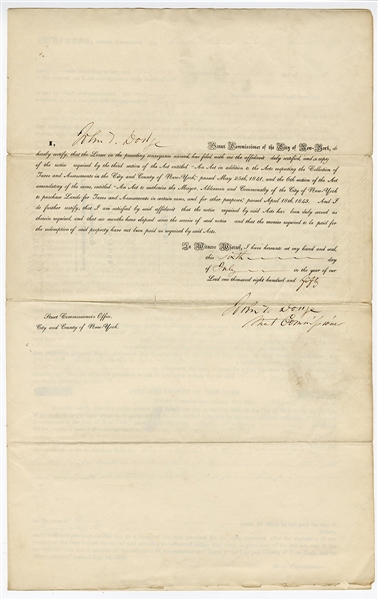 I, John T. Dodge Street Commissioner of the City of New-York, do
hereby certify, that the Lessee in the preceding conveyance named, has filed with me the affidavit duly certified, and a copy
of the notice required by the third section of the Act entitled "An Act in addition to the Acts respecting the Collection of
Taxes and Assessments in the City and County of New-York," passed May 25th, 1841, and the 6th section of the Act
amendatory of the same, entitled "An Act to authorize the Mayor, Aldermen and Commonalty of the City of New-York
to purchase Lands for Taxes and Assessments in certain cases, and for other purposes," passed April 18th, 1843. And I
do further certify, that I am satisfied by said affidavit that the notice required by said Acts has been duly served as
therein required, and that six months have elapsed since the service of said notice and that the moneys required to be paid for
the redemption of said property have not been paid as required by said Acts.
In Witness Whereof, I have hereunto set my hand and seal,
this Sixth day
of July in the year of our
Lord one thousand eight hundred and fifty
John T. Dodge
Street Commissioner
Street Commissioner's Office,
City and County of New-York.